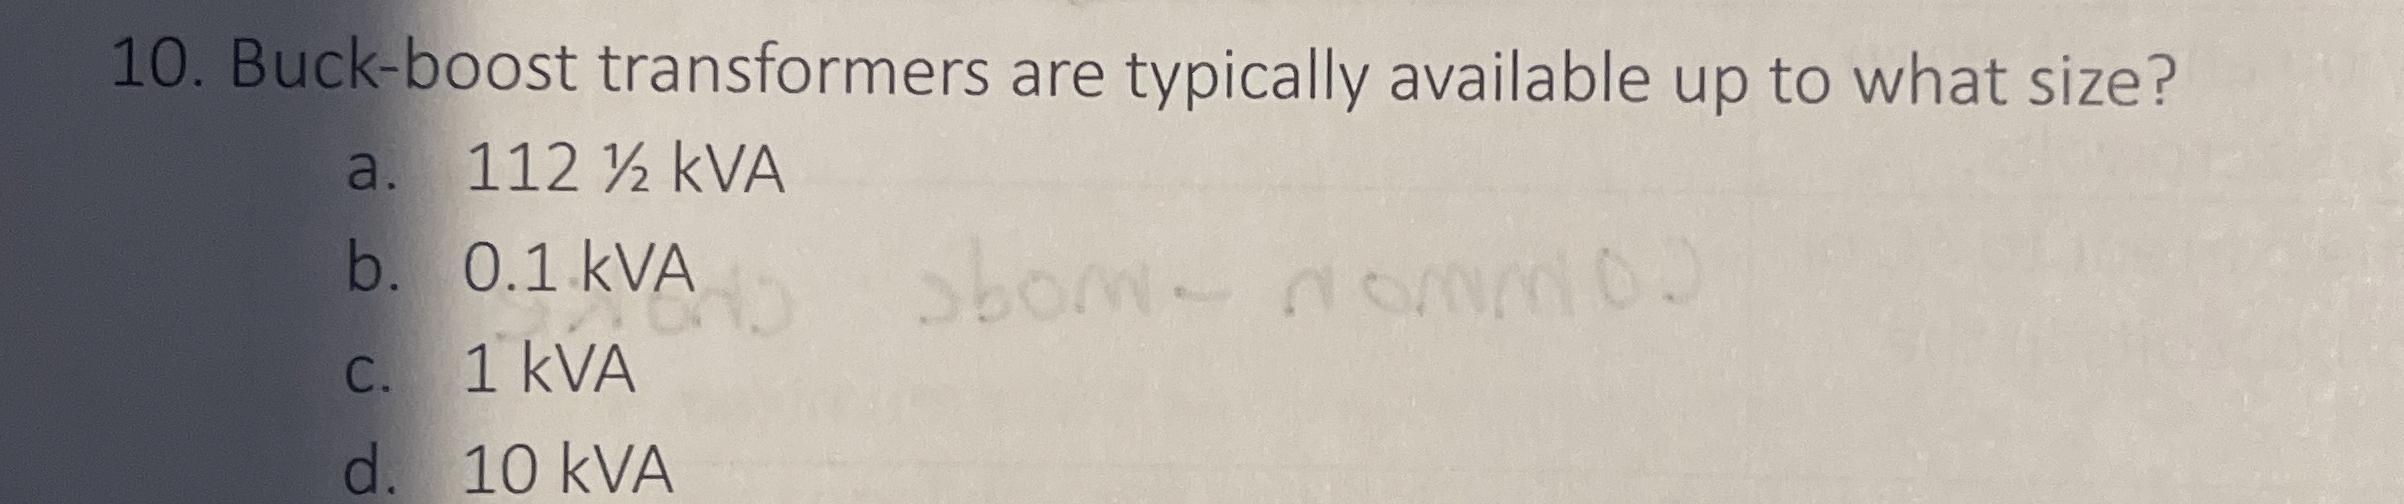 10. Buck-boost transformers are typically available up to what size?
a. 112 ½ kVA
b. 0.1 kVA
common - mode choke
c. 1 kVA
d. 10 kVA